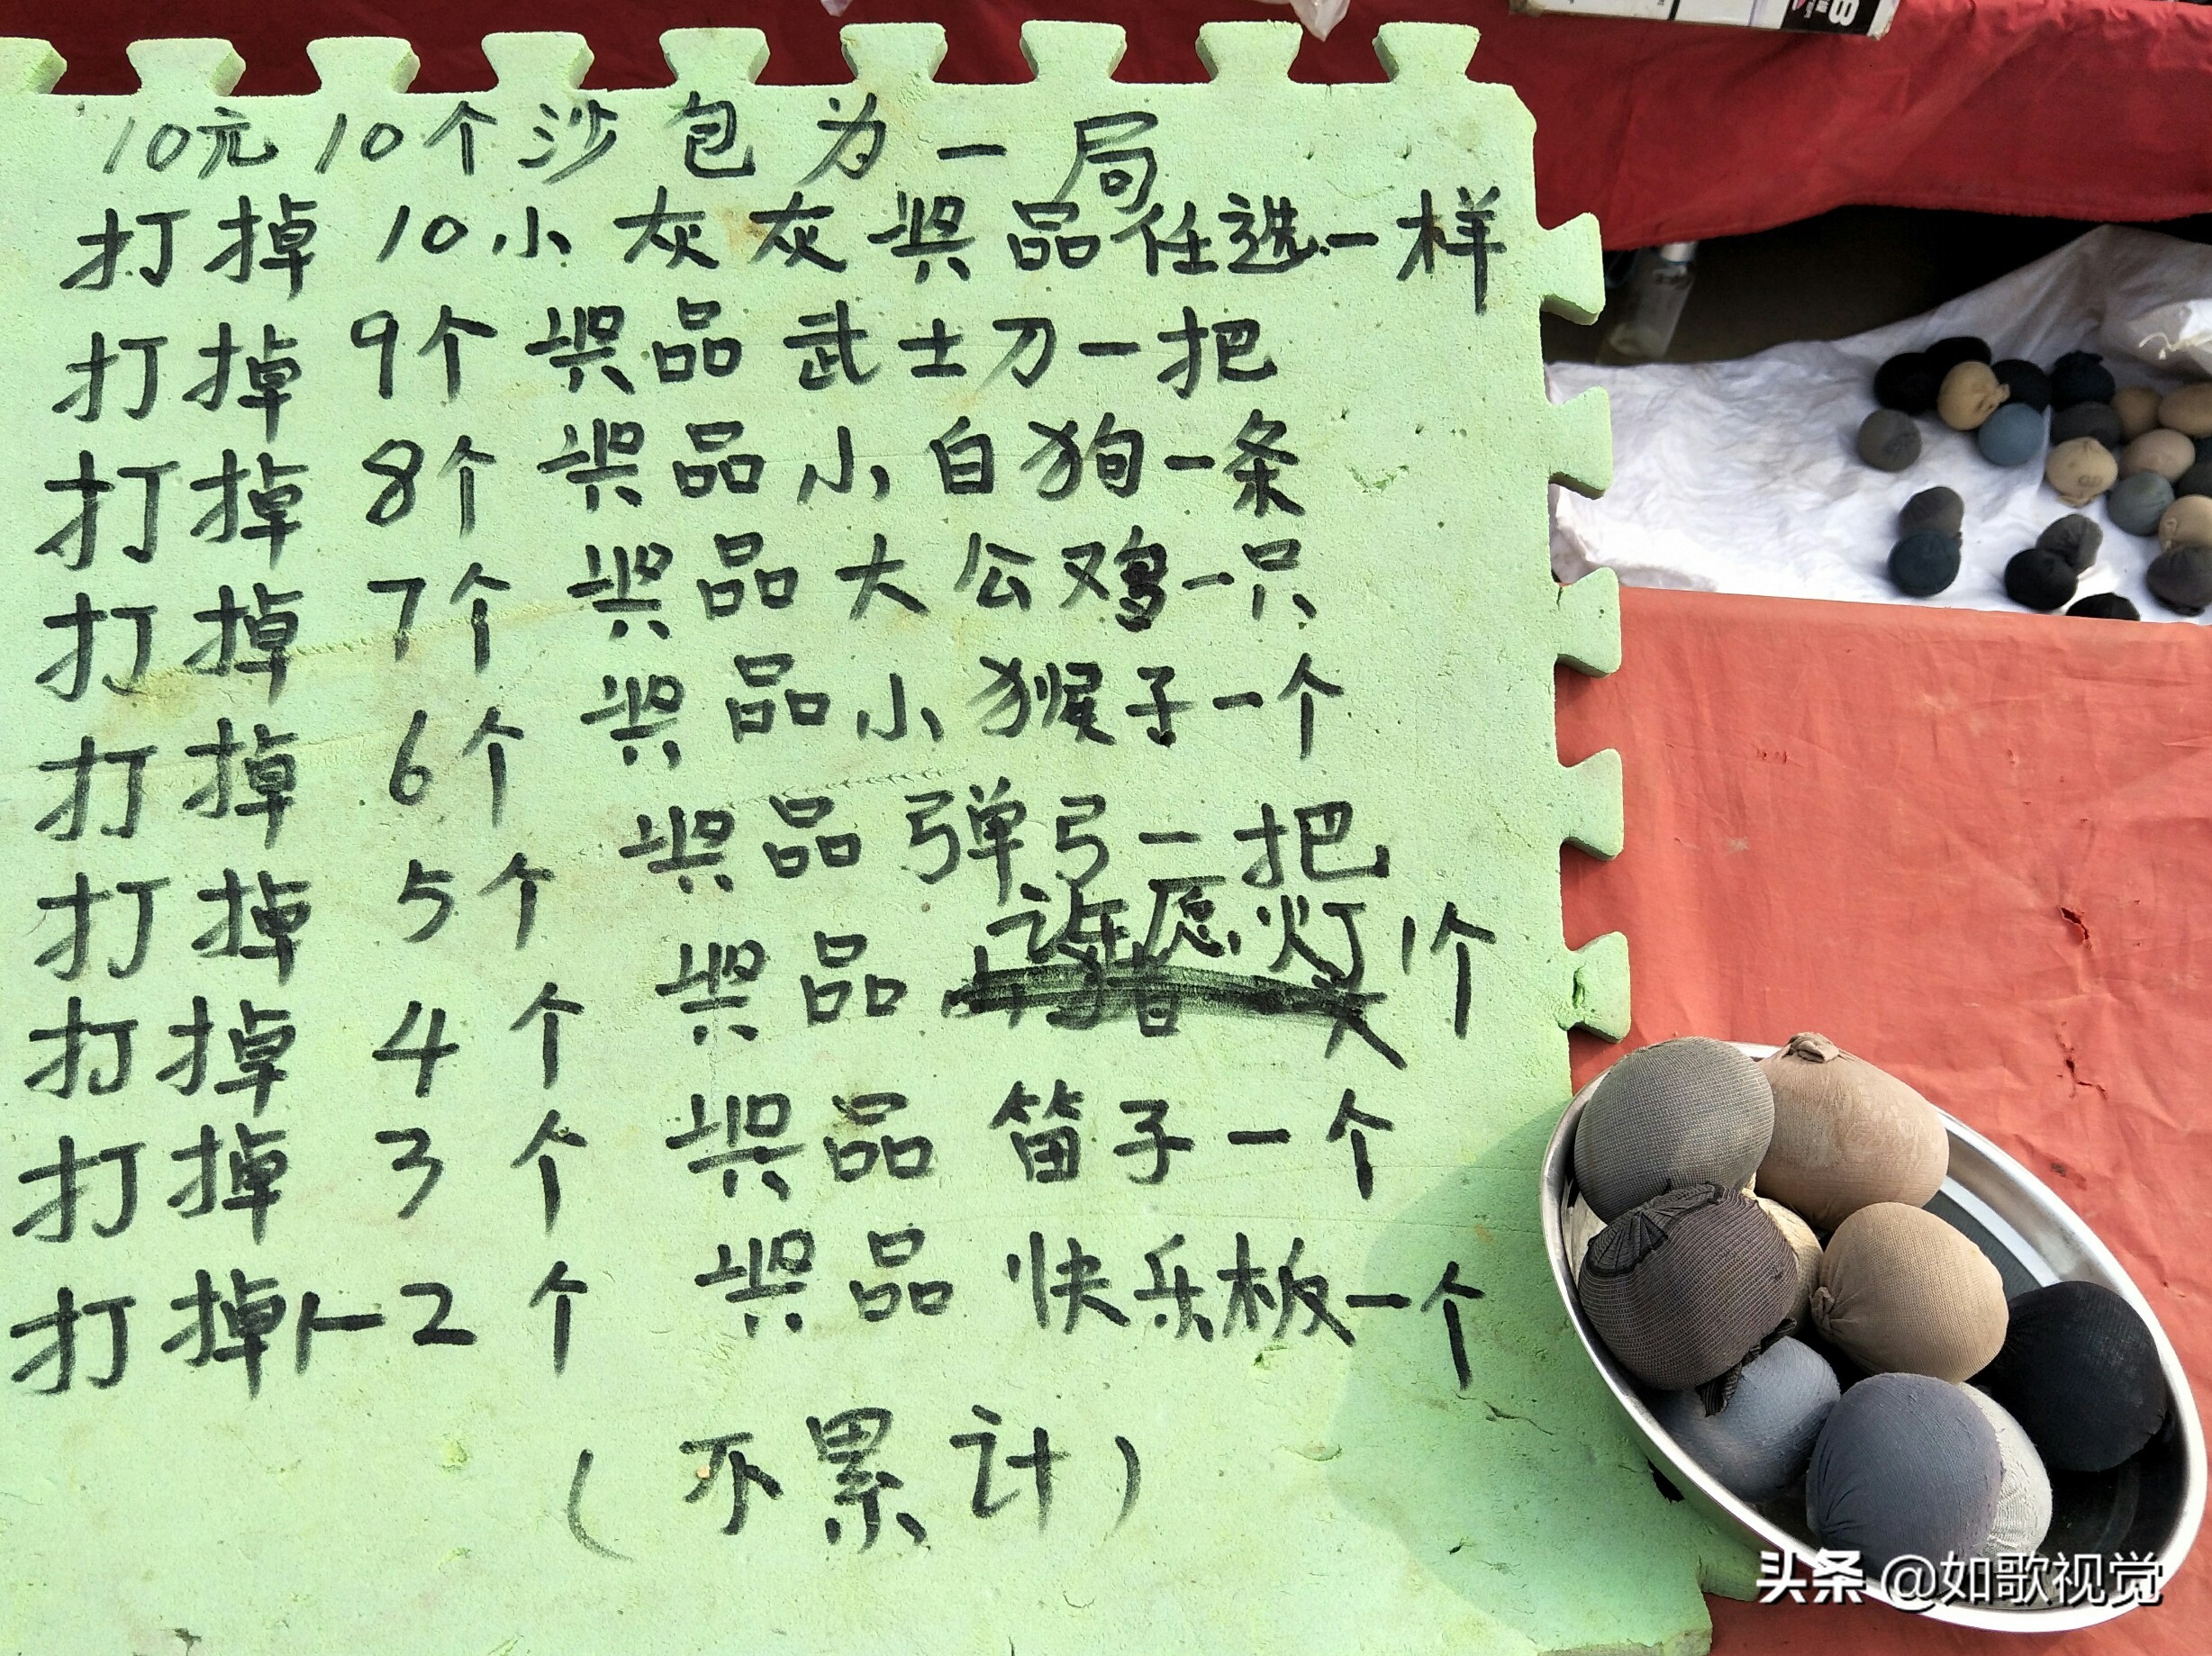 10元10个沙包为一局
打掉10小灰灰奖品任选一样
打掉9个奖品武士刀一把
打掉8个奖品小白狗一条
打掉7个奖品大公鸡一只
打掉6个奖品小猴子一个
打掉5个奖品弹弓一把
打掉4个奖品许愿灯1个
打掉3个奖品笛子一个
打掉1-2个奖品快乐板一个
(不累计)
头条 @如歌视觉